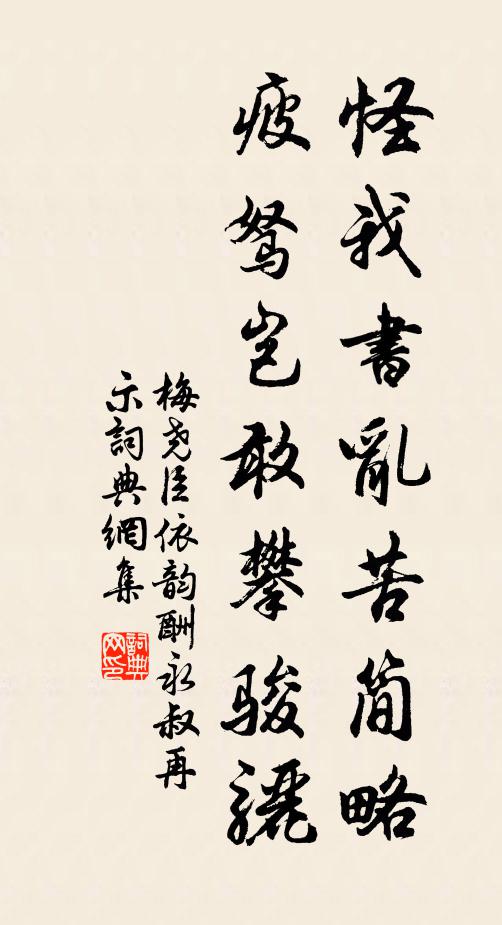 怪我書亂苦簡略
疲駑豈敢攀駿驪
梅堯臣依韵酬永叔再
示詞典網集
詞典網印